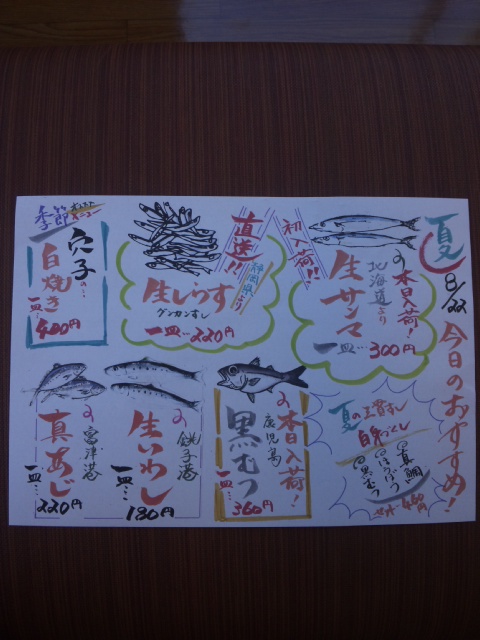 夏
8/22 今日のおすすめ!
本日入荷!
北海道より
生サンマ
一皿…300円
初入荷!!
直送!!
静岡県より
生しらす
グンカンすし
一皿…220円
季節
メニュー
穴子の…
白焼き
一皿…400円
夏の三貫すし
自身づくし
真鯛
ほうぼう
黒むつ
セット 460円
本日入荷!
鹿児島
黒むつ
一皿…360円
銚子港
生いわし
一皿…
180円
富津港
真あじ
一皿…
220円